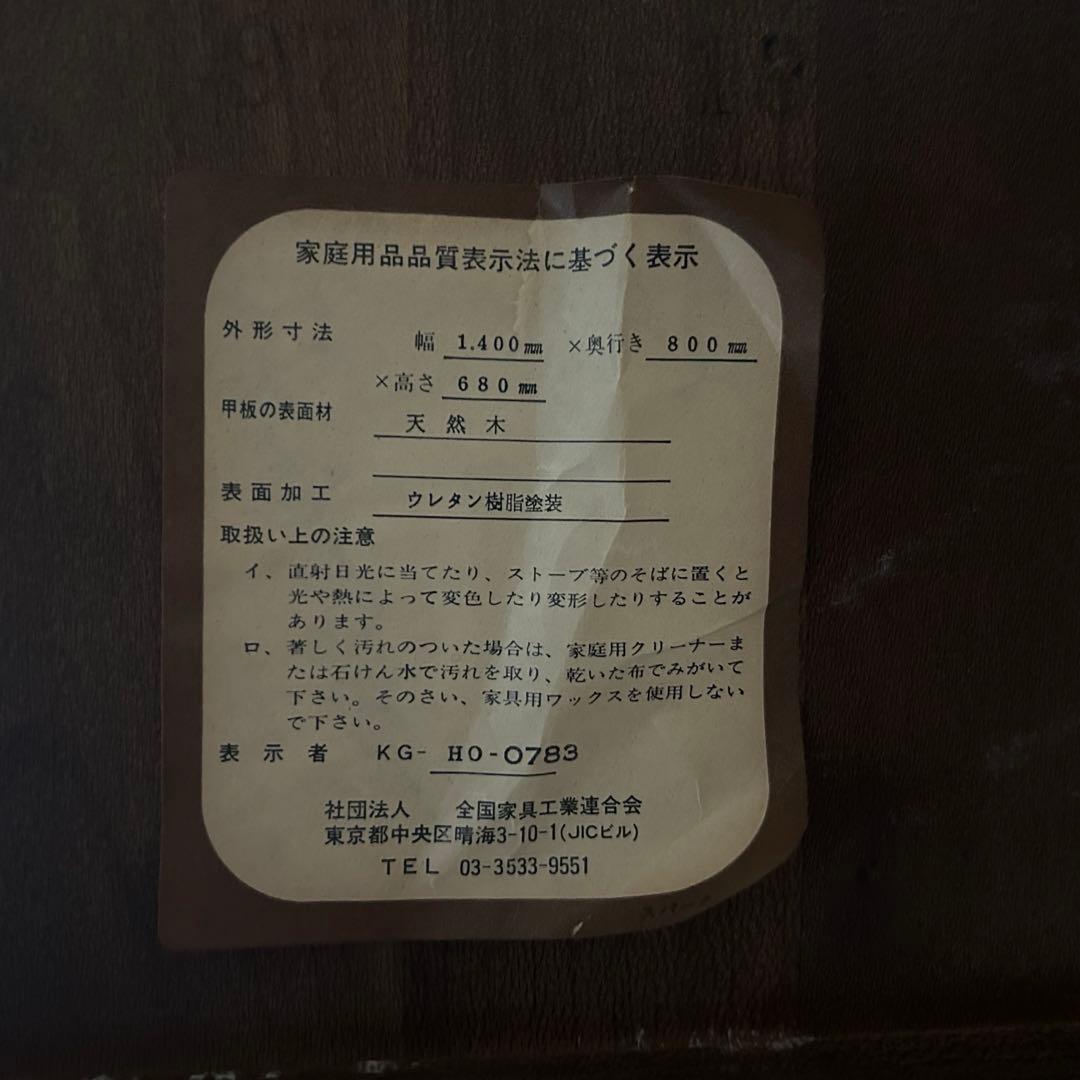 家庭用品品質表示法に基づく表示
外形寸法 幅 1.400㎜ ×奥行き 800㎜
×高さ 680㎜
甲板の表面材 天然木
表面加工 ウレタン樹脂塗装
取扱い上の注意
イ、直射日光に当てたり、ストーブ等のそばに置くと
光や熱によって変色したり変形したりすることが
あります。
ロ、著しく汚れのついた場合は、家庭用クリーナーま
たは石けん水で汚れを取り、乾いた布でみがいて
下さい。そのさい、家具用ワックスを使用しない
で下さい。
表示者 KG- HO-0783
社団法人 全国家具工業連合会
東京都中央区晴海3-10-1(JICビル)
TEL 03-3533-9551